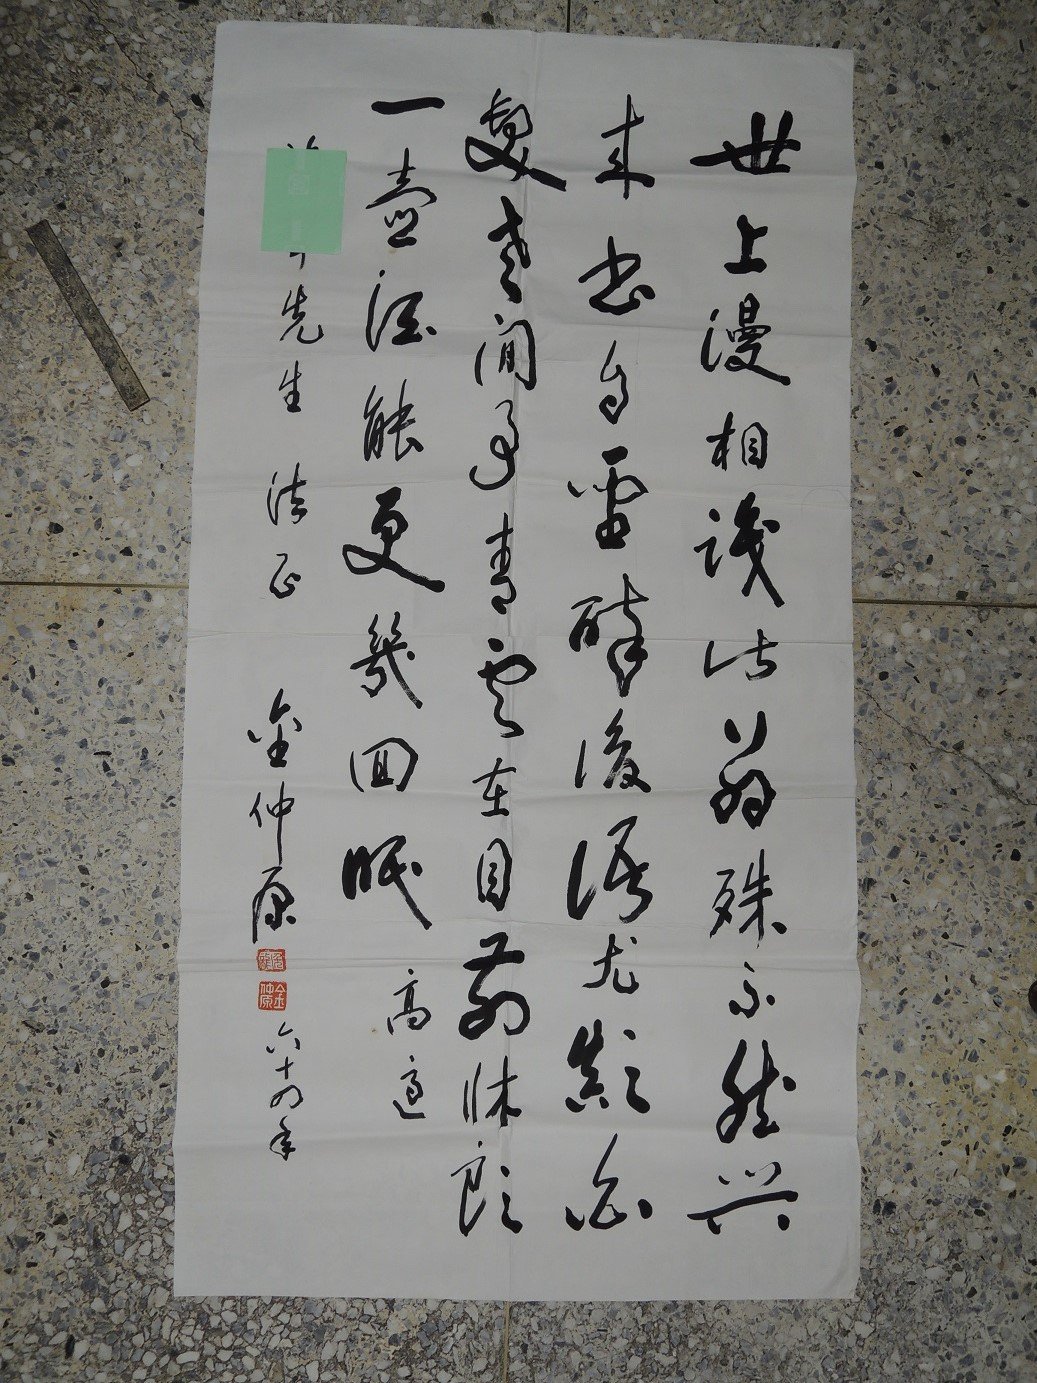 世上漫相識此翁殊不然興
來書自聖醉後語尤顛白
髮老閒事青雲在目前牀頭
一壺酒能更幾回眠 高適
先生 法正 金仲原 六十四年
金仲原